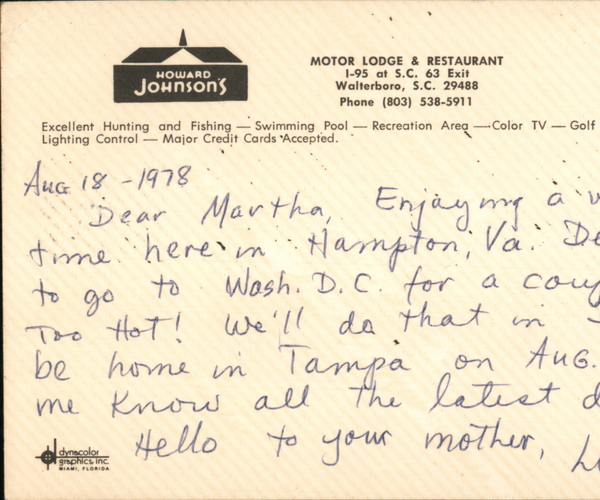 HOWARD
JOHNSON'S
MOTOR LODGE & RESTAURANT
I-95 at S.C. 63 Exit
Walterboro, S.C. 29488
Phone (803) 538-5911
Excellent Hunting and Fishing — Swimming Pool — Recreation Area — Color TV — Golf
Lighting Control — Major Credit Cards Accepted.
Aug 18 - 1978
Dear Martha, Enjoying a
time here in Hampton, Va.
to go to Wash. D.C. for a
Too Hot! We'll do that in
be home in Tampa on Aug.
me know all the latest
Hello to your mother,
dynacolor
graphics, inc.
MIAMI, FLORIDA